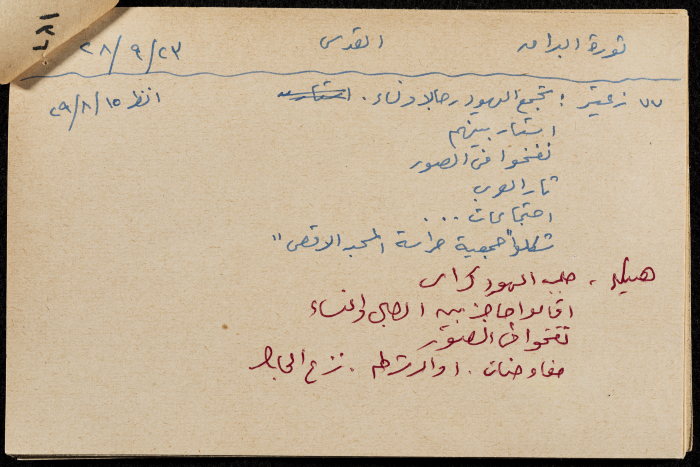 ثورة البراق القدس ٢٨/٩/٢٣
٧٧ زعيتر : تجمع اليهود رجالا ونساء . استار انظر ٢٩/٨/١٥
استار بينهم
نفخوا في الصور
ثار العرب
احتجاجات . . . .
شكلوا "جمعية حراسة المسجد الاقصى"
هيكل . جلب اليهود كراسي
اقاموا حاجزا بين الرجال والنساء
نفخوا في الصور
مفاوضات . اوامر شرطة . نزع الحاجز